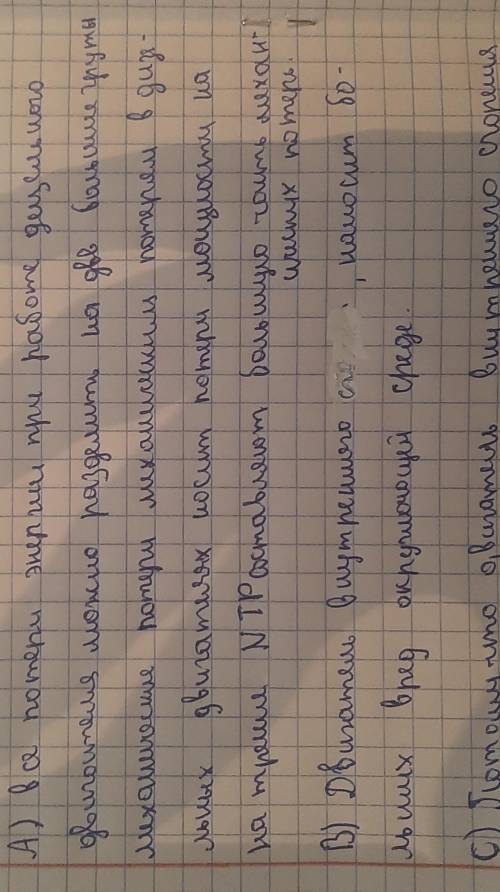 А) все потери энергии при работе дизельного
двигателя можно разделить на две большие группы
механические потери механическим потерям в дизе-
льных двигателях носит потери мощности на
на трения NТРсоставляют большую часть механ-
ичиных потерь.
В) Двигатель внутреннего , наносит бо-
льших вред окружающей среде.
С) Потому что двигатель внутреннего сгорения